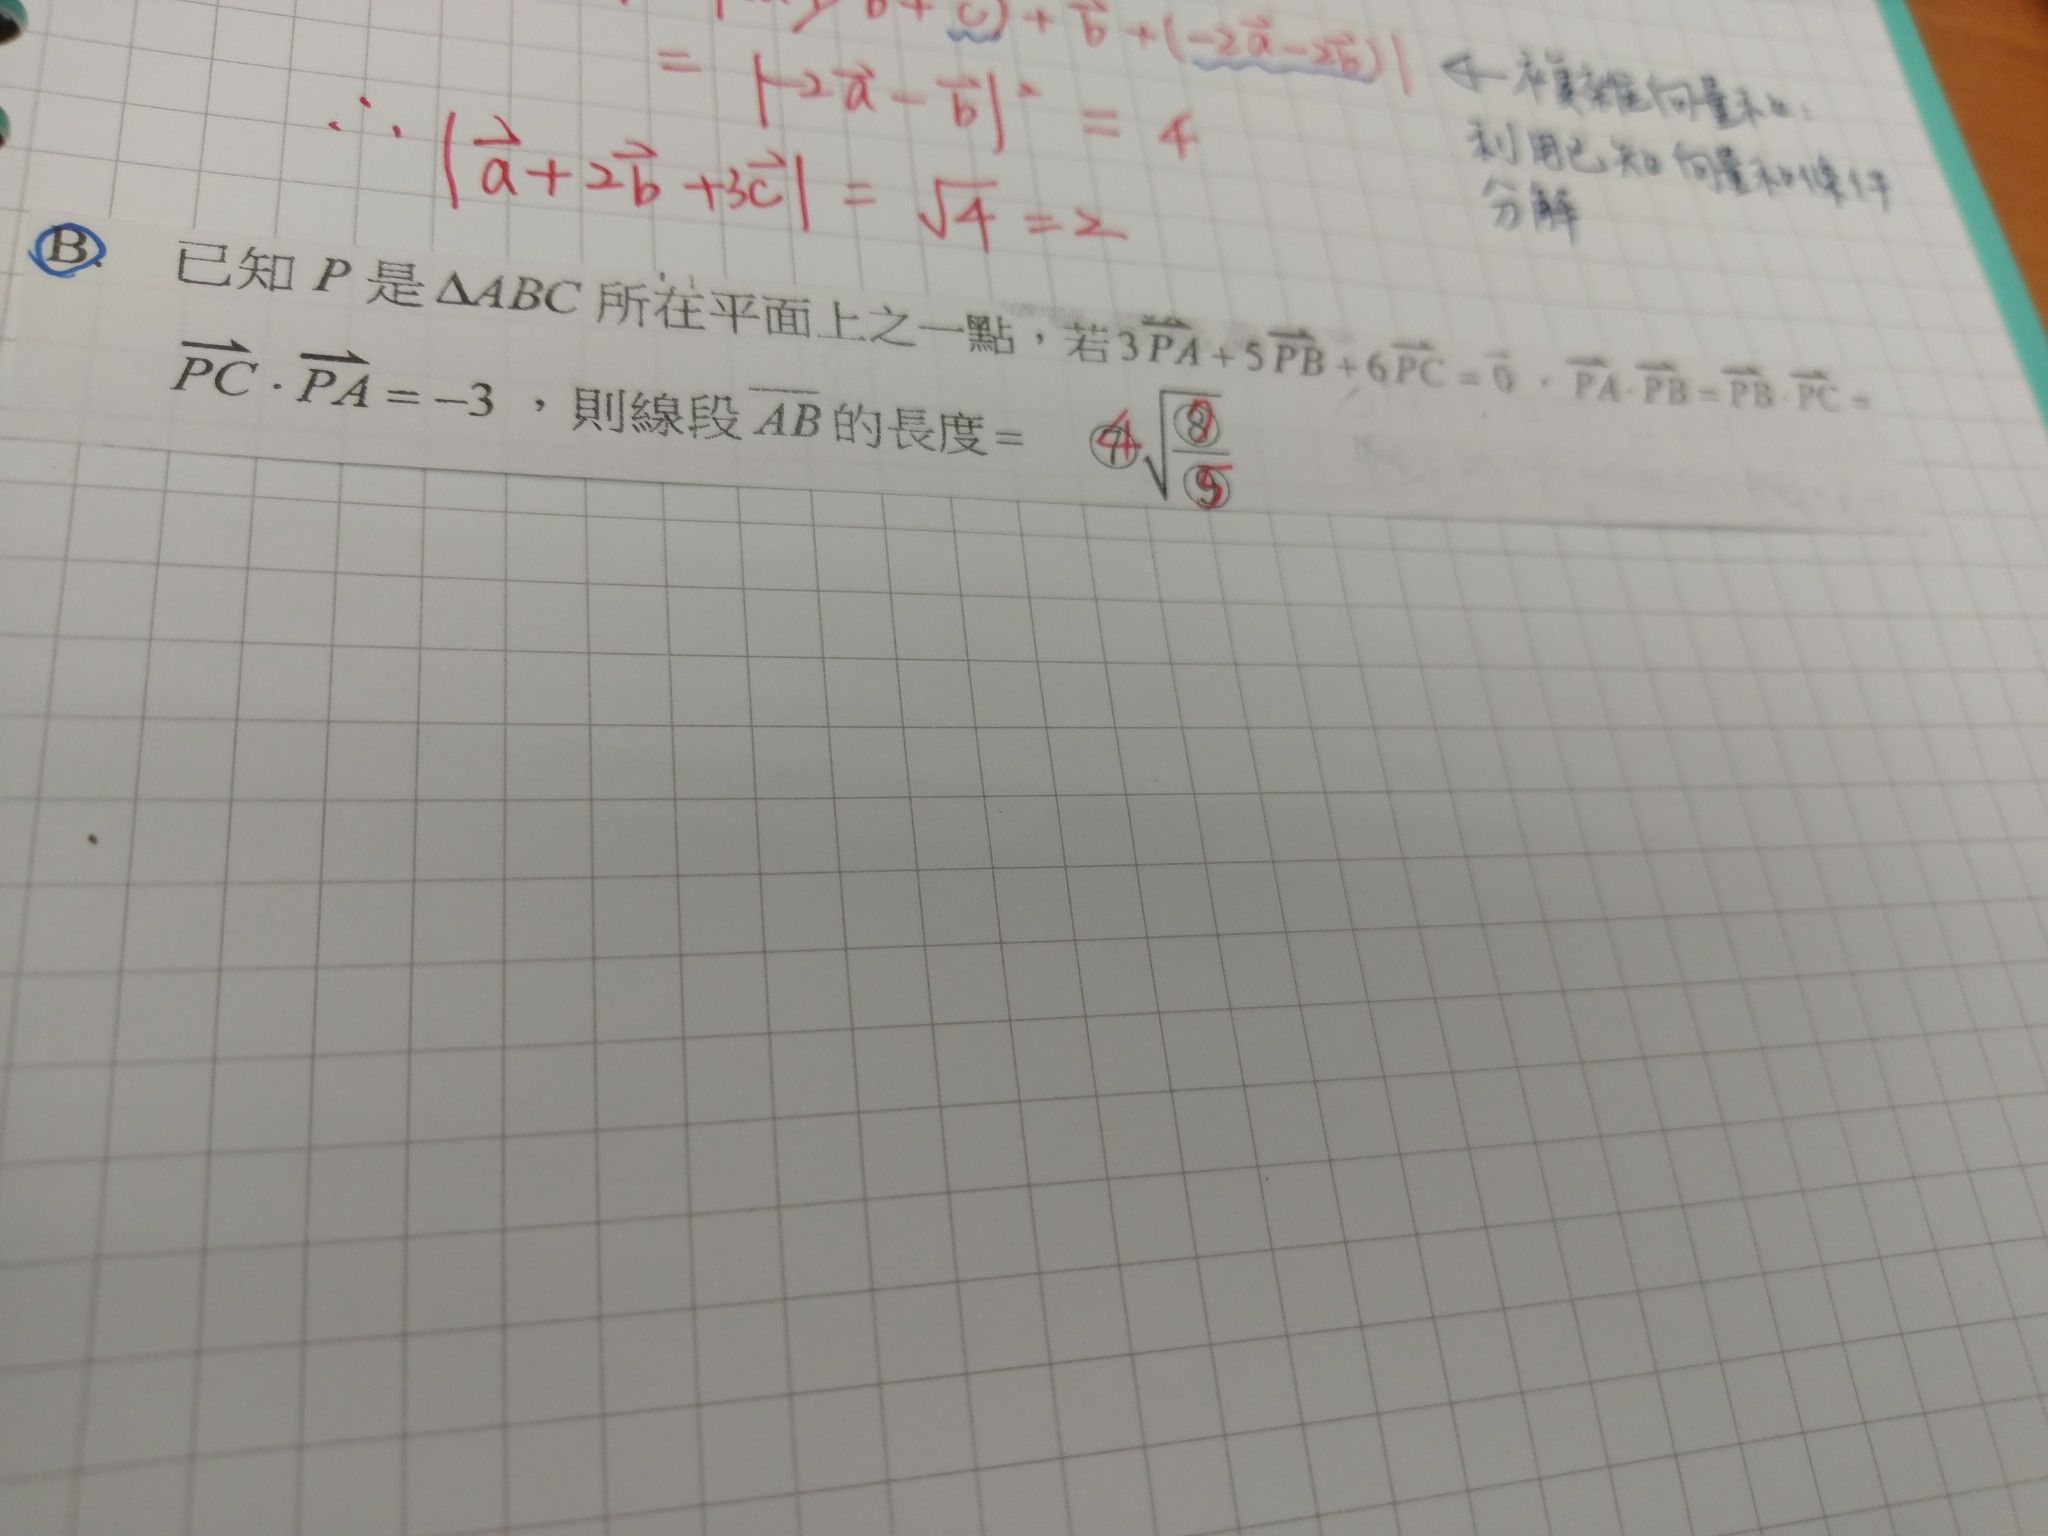 b + c) + b + (-2a - 2b)|
= |-2a - b|² = 4
∴ |a + 2b + 3c| = √4 = 2
←複雜向量和:
利用已知向量和條件
分解
B. 已知 P 是 ΔABC 所在平面上之一點，若 3PA + 5PB + 6PC = 0，PA · PB = PB · PC =
PC · PA = -3 ，則線段 AB 的長度 = 4√(8/5)